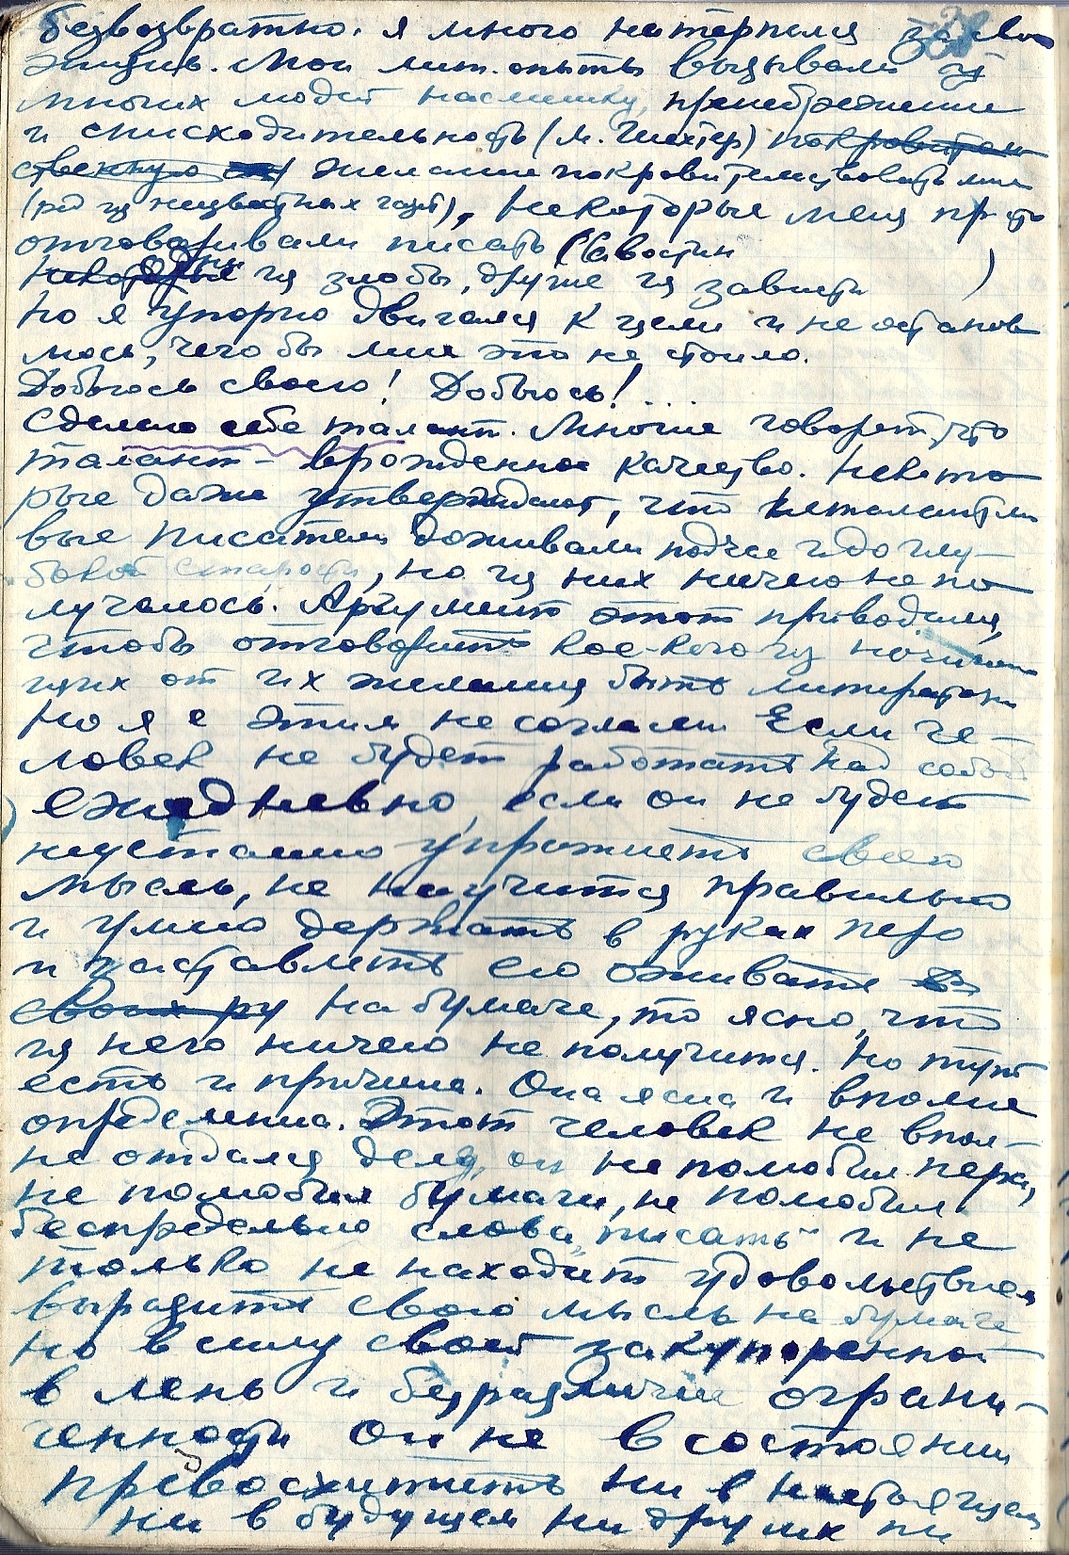 безвозвратно. Я много натерпелся за свою
жизнь. Мои лит. опыты вызывали у
многих людей насмешку, пренебрежение
и снисходительность (М. Шехтер) покровитель
ственную желание покровительствовать мне
(ред из неизвестных газет), некоторые меня просто
отговаривали писать (Савостин
некоторые одни из злобы, другие из зависти )
Но я упорно двигался к цели и не останов
люсь, чего бы мне это не стоило.
Добьюсь своего! Добьюсь!...
Сделаю себе талант. Многие говорят, что
талант - врожденное качество. Некото
рые даже утверждают, что неталантли
вые писатели доживали подчас и до глу-
бокой старости, но из них ничего не по
лучалось. Аргумент этот приводился,
чтобы отговорить кое-кого из начинаю
щих от их желания быть литератором
Но я с этим не согласен. Если че-
ловек не будет работать над собой
ежедневно, если он не будет
неустанно упражнять свою
мысль, не научится правильно
и умно держать в руках перо
и заставлять его оживать в
своих ру на бумаге, то ясно, что
из него ничего не получится. Но тут
есть и причина. Она ясна и вполне
определенна. Этот человек не впол-
не отдался делу, он не полюбил пера,
не полюбил бумаги, не полюбил
беспредельно слова "писать" и не
только не находит удовольствия
выразить свою мысль на бумаге
но в силу своей закупоренной
в лень и безразличие ограни-
ченности он не в состоянии
превосхитить ни в настоящем
ни в будущем ни других ни